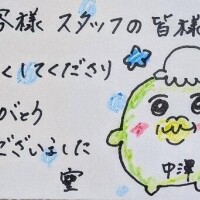 客様 スタッフの皆様
くしてくださり
がとう
ございました
中澤